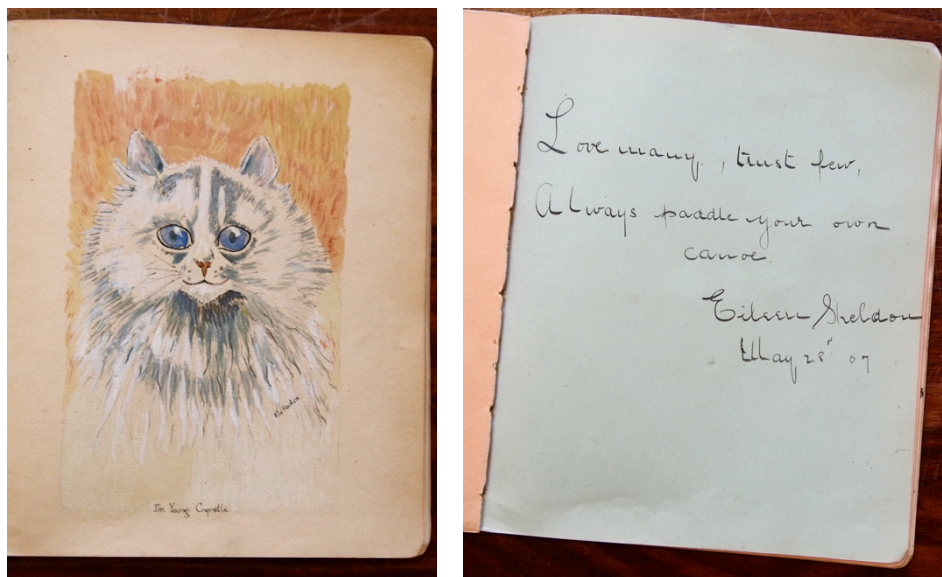 The Young Coquette
Love many, trust few,
Always paddle your own
canoe.
Eileen Sheldon
May 28" 07